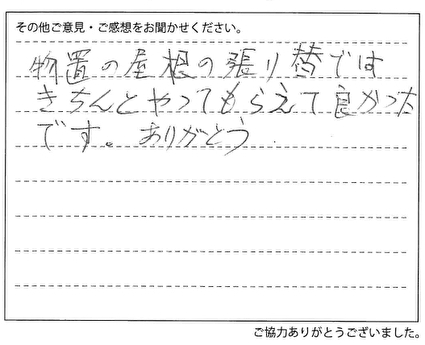 その他ご意見・ご感想をお聞かせください。
物置の屋根の張り替では
きちんとやってもらえて良かった
です。ありがとう
ご協力ありがとうございました。